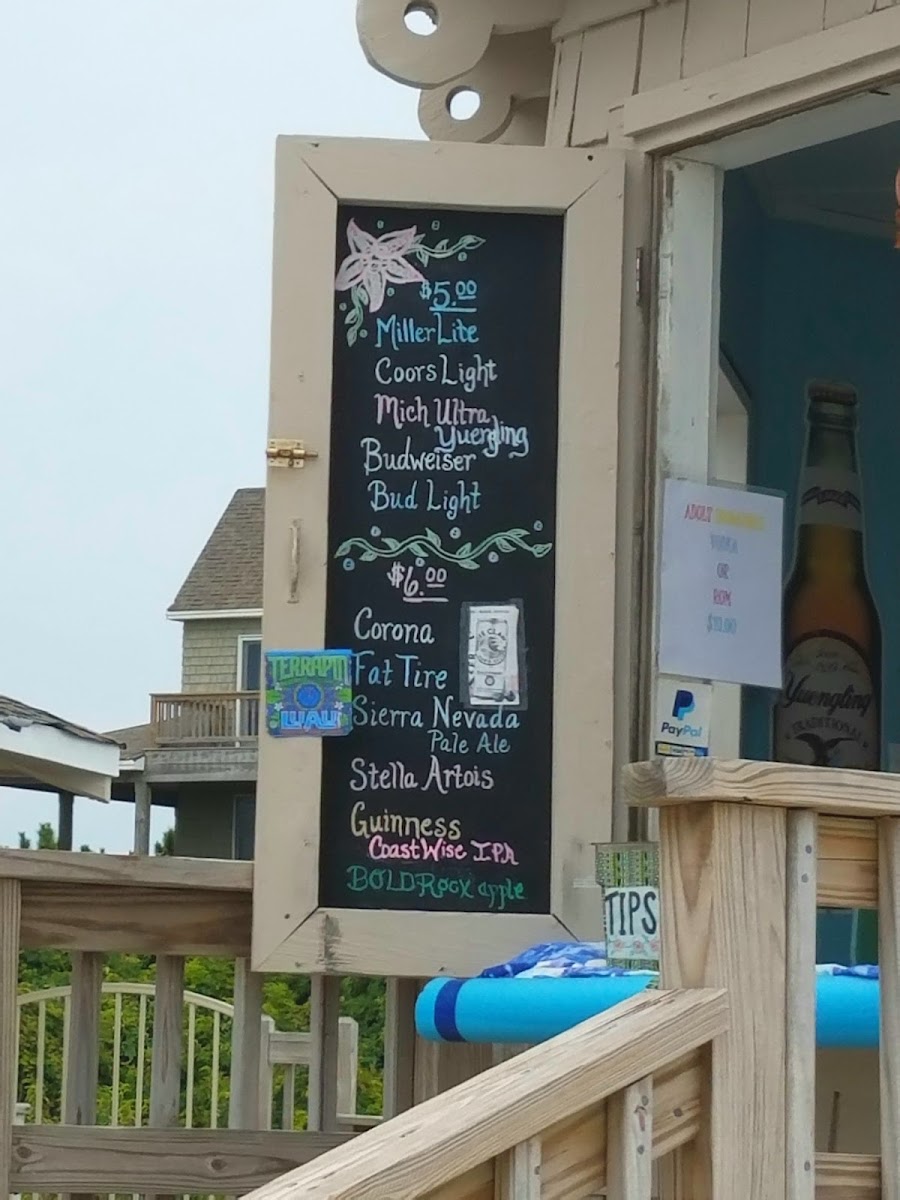 $5.00
Miller Lite
Coors Light
Mich Ultra
Yuengling
Budweiser
Bud Light
$6.00
Corona
Fat Tire
Sierra Nevada
Pale Ale
Stella Artois
Guinness
CoastWise IPA
BOLD Rock apple
TERRAPIN
LUAU
ADULT
VODKA
OR
RUM
PayPal
Yuengling
TRADITIONAL
TIPS